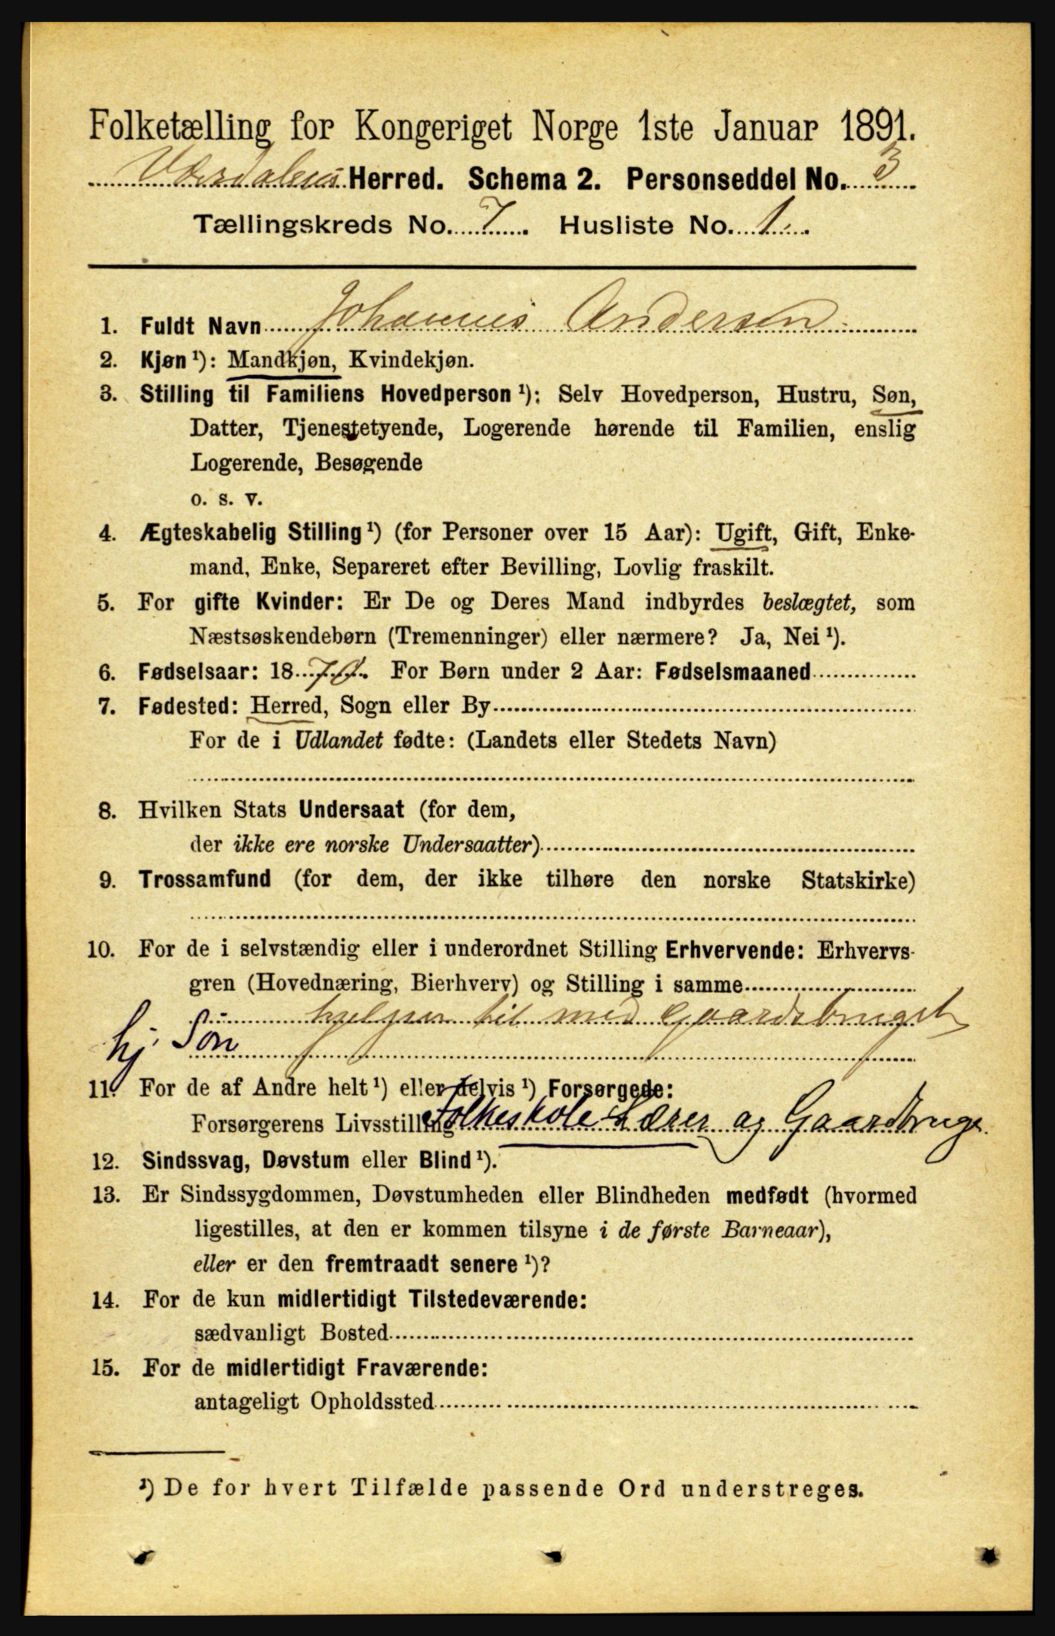 Folketælling for Kongeriget Norge 1ste Januar 1891.
Værdalens Herred. Schema 2. Personseddel No. 3
Tællingskreds No. 7. Husliste No. 1.
1. Fuldt Navn Johannes Andersen
2. Kjøn ¹): Mandkjøn, Kvindekjøn.
3. Stilling til Familiens Hovedperson ¹): Selv Hovedperson, Hustru, Søn,
Datter, Tjenestetyende, Logerende hørende til Familien, enslig
Logerende, Besøgende
o. s. v.
4. Ægteskabelig Stilling ¹) (for Personer over 15 Aar): Ugift, Gift, Enke-
mand, Enke, Separeret efter Bevilling, Lovlig fraskilt.
5. For gifte Kvinder: Er De og Deres Mand indbyrdes beslægtet, som
Næstsøskendebørn (Tremenninger) eller nærmere? Ja, Nei ¹).
6. Fødselsaar: 1870. For Børn under 2 Aar: Fødselsmaaned
7. Fødested: Herred, Sogn eller By
For de i Udlandet fødte: (Landets eller Stedets Navn)
8. Hvilken Stats Undersaat (for dem,
der ikke ere norske Undersaatter)
9. Trossamfund (for dem, der ikke tilhøre den norske Statskirke)
10. For de i selvstændig eller i underordnet Stilling Erhvervende: Erhvervs-
gren (Hovednæring, Bierhverv) og Stilling i samme
hjelper til med Gaardsbruget
hj. Søn
11. For de af Andre helt ¹) eller delvis ¹) Forsørgede:
Forsørgerens Livsstilling Folkeskole Lærer og Gaardbruge.
12. Sindssvag, Døvstum eller Blind ¹).
13. Er Sindssygdommen, Døvstumheden eller Blindheden medfødt (hvormed
ligestilles, at den er kommen tilsyne i de første Barneaar),
eller er den fremtraadt senere ¹)?
14. For de kun midlertidigt Tilstedeværende:
sædvanligt Bosted
15. For de midlertidigt Fraværende:
antageligt Opholdssted
¹) De for hvert Tilfælde passende Ord understreges.